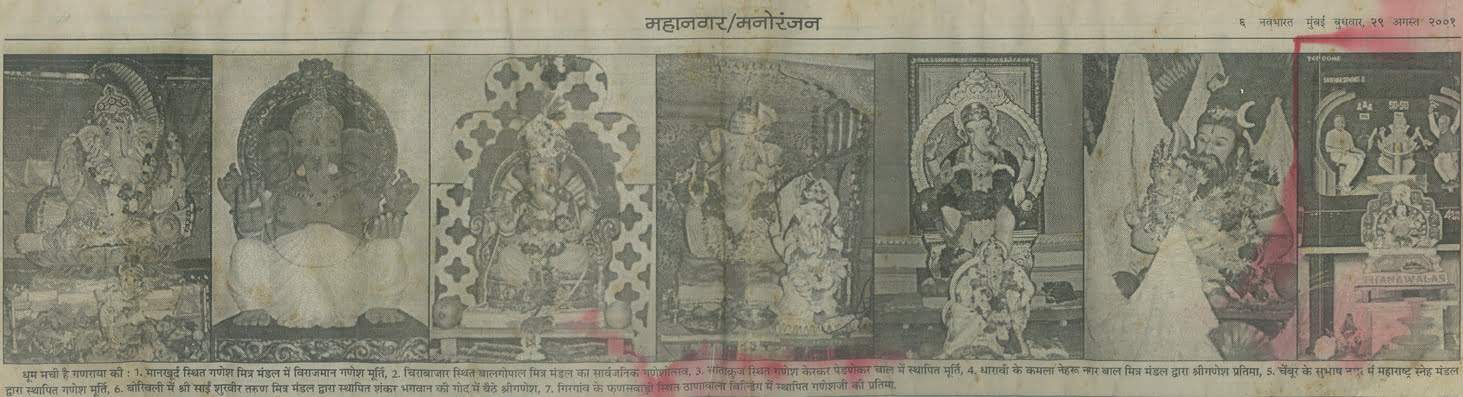 महानगर/मनोरंजन
६ नवभारत मुंबई बुधवार, २९ अगस्त २००१
50-50
THANAWALAS
धूम मची है गणराया की : 1. मानखुर्द स्थित गणेश मित्र मंडल में विराजमान गणेश मूर्ति, 2. चिराबाजार स्थित बालगोपाल मित्र मंडल का सार्वजनिक गणेशोत्सव, 3. स्थित गणेश केरकर पेडणेकर चाल में स्थापित मूर्ति, 4. धारावी के कमला नेहरू नगर बाल मित्र मंडल द्वारा श्रीगणेश प्रतिमा, 5. चेंबूर के सुभाष नगर में महाराष्ट्र स्नेह मंडल
द्वारा स्थापित गणेश मूर्ति, 6. बोरिवली में श्री साई शुरवीर तरुण मित्र मंडल द्वारा स्थापित शंकर भगवान की गोद में बैठे श्रीगणेश, 7. गिरगांव के फणसवाडी स्थित ठाणावाला बिल्डिंग में स्थापित गणेशजी की प्रतिमा.